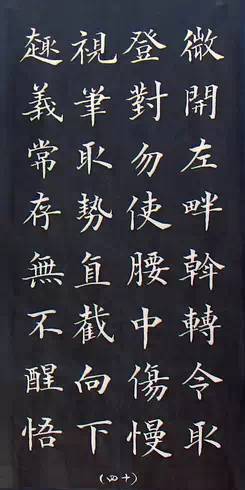 微開左畔斡轉令取
登對勿使腰中傷慢
視筆取勢直截向下
趣義常存無不醒悟
(四十)